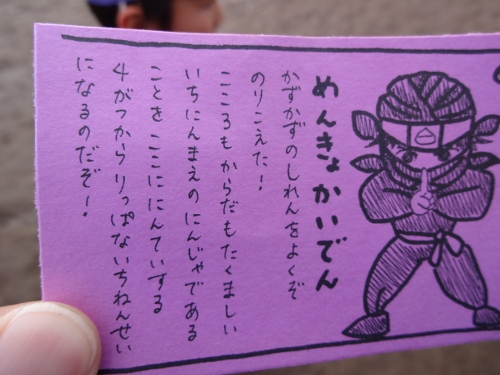 めんきょかいでん
かずかずのしれんをよくぞ
のりこえた！
こころもからだもたくましい
いちにんまえのにんじゃである
ことを ここににんていする
4がつからりっぱないちねんせい
になるのだぞ！